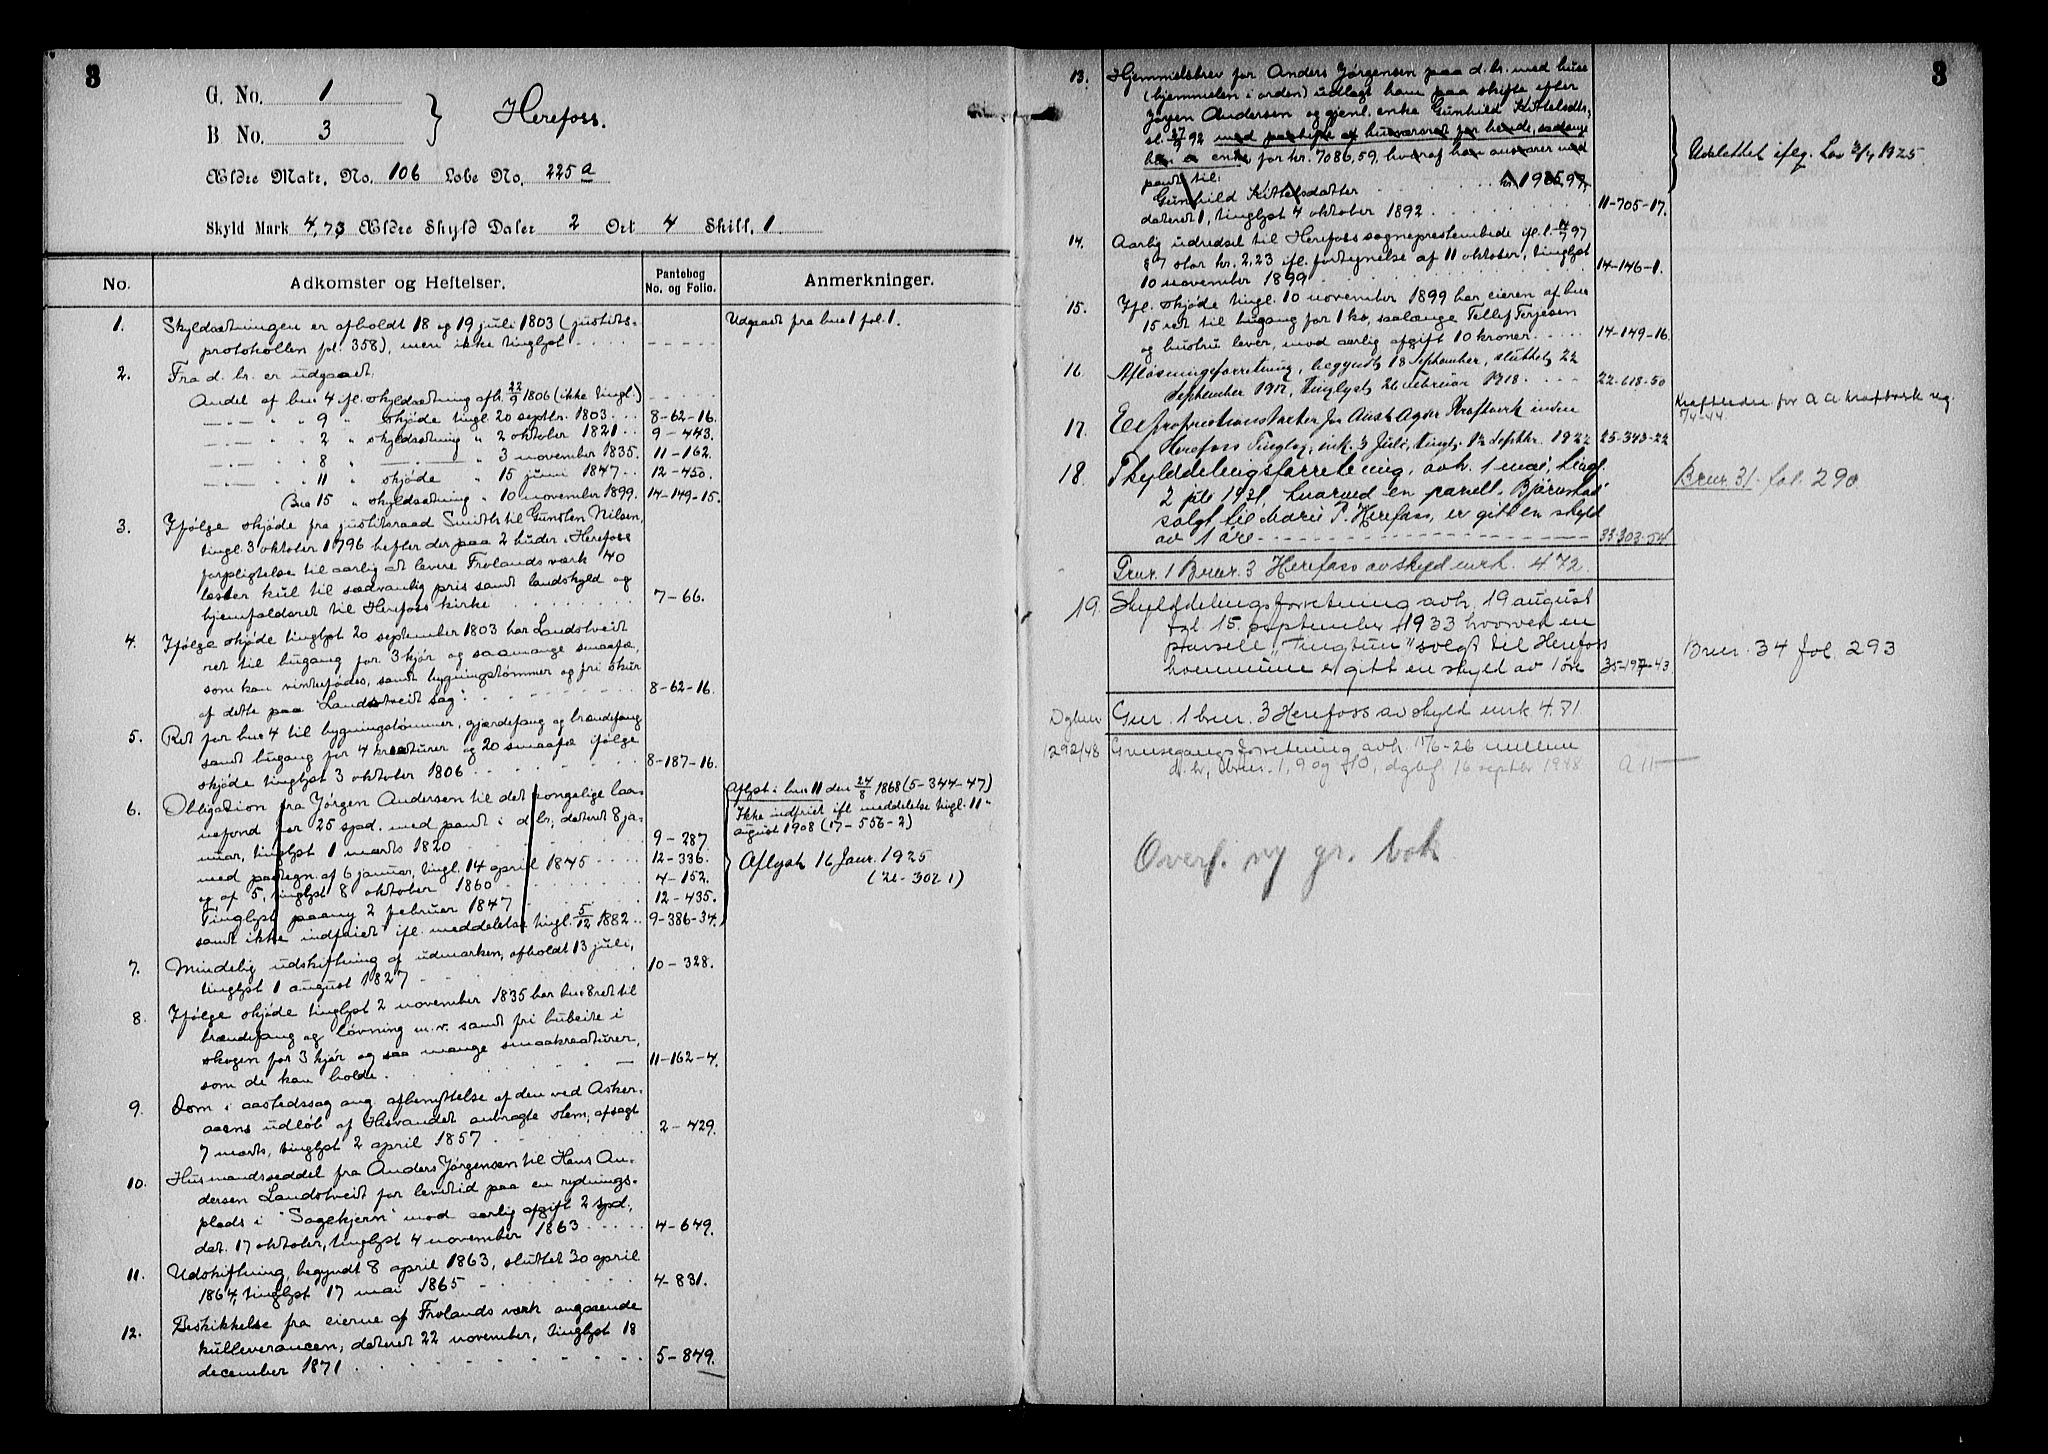 3
G. No. 1
B No. 3
Herefoss.
Ældre Matr. No. 106 Løbe No. 225 a
Skyld Mark 4,73 Ældre Skyld Daler 2 Ort 4 Skill. 1
No. Adkomster og Heftelser. Pantebog No. og Folio. Anmerkninger.
1. Skyldsætningen er afholdt 18 og 19 juli 1803 (justits- Udgaaet fra bno 1 fol. 1.
protokollen fol. 358), men ikke tinglyst
2. Fra d. br. er udgaaet:
Andel af bno 4 ifl. skyldsætning afh. 22/9 1806 (ikke tingl.)
" " 9 " skjøde tingl. 20 septbr. 1803 8-62-16.
" " 2 " skyldsætning " 2 oktober 1821 9-443.
" " 8 " " 3 november 1835. 11-162.
" " 11 " skjøde " 15 juni 1847 12-450.
Bno 15 " skyldsætning " 10 november 1899. 14-149-15.
3. Ifølge skjøde fra justitsraad Smith til Gunsten Nilsen,
tingl. 3 oktober 1796 hefter der paa 2 huder i Herefoss
forpligtelse til aarlig at levere Frolands værk 40
lester kul til sædvanlig pris samt landskyld og
hjemfaldsret til Herefoss kirke 7-66.
4. Ifølge skjøde tinglyst 20 september 1803 har Landstveit
ret til bugang for 3 kjør og saamange smaafæ,
som kan vinterfødes, samt bygningstømmer og fri skur
af dette paa Landstveit sag. 8-62-16.
5. Ret for bno 4 til bygningstømmer, gjærdefang og brændefang
samt bugang for 4 kreaturer og 20 smaafæ ifølge
skjøde tinglyst 3 oktober 1806 8-187-16.
6. Obligation fra Jørgen Andersen til det kongelige laa- Aflyst i bno 11 den 24/8 1868 (5-344-47)
nefond for 25 spd. med pant i d. br., dateret 8 ja- Ikke indfriet ifl. meddelelse tingl. 11
nuar, tinglyst 1 marts 1820 9-287. august 1908 (17-556-2)
med paategn. af 6 januar, tingl. 14 april 1845 12-336. Aflyst 16 Janr. 1925
og af 5, tinglyst 8 oktober 1860 4-152. (26-302 1)
Tinglyst paany 2 februar 1847 12-435.
samt ikke indfriet ifl. meddelelse tingl. 5/12 1882 9-386-34.
7. Mindelig udskiftning af udmarken, afholdt 13 juli,
tinglyst 1 august 1827 10-328.
8. Ifølge skjøde tinglyst 2 november 1835 har bno 8 ret til
brændefang og løvning m.v. samt fri bubeite i
skogen for 3 kjør og saa mange smaakreaturer,
som de kan holde. 11-162-4.
9. Dom i aastedssag ang. afbenyttelse af den ved Asker-
aaens udløb af Hisvandet anbragte stem, afsagt
7 marts, tinglyst 2 april 1857 2-429.
10. Husmandsseddel fra Anders Jørgensen til Hans An-
dersen Landstveit for levetid paa en rydnings-
plads i "Sagekjern" mod aarlig afgift 2 spd,
dat. 17 oktober, tinglyst 4 november 1863 4-649.
11. Udskiftning, begyndt 8 april 1863, sluttet 30 april
1864, tinglyst 17 mai 1865 4-831.
12. Beskikkelse fra eierne af Frolands værk angaaende
kulleverancen, dateret 22 november, tinglyst 18
december 1871 5-849.
3
13. Hjemmelsbrev for Anders Jørgensen paa d. br. med huse
(hjemmelen i orden) udlagt ham paa skifte efter
Jørgen Andersen og gjenl. enke Gunhild Kittelsdtr.
sl. 27/9 92 med paahefte af husværaret for hende, saalænge
hun er enke for kr. 7086,59, hvoraf han ansvarer med Udslettet iflg. Lov 3/4 1925
pant til:
Gunhild Kittelsdatter kr. 1985,97,
dateret 1, tinglyst 4 oktober 1892 11-705-17.
14. Aarlig udredsel til Herefoss sogneprestembede ifl. l. 14/7 97
§ 7 stor kr. 2,23 ifl. fortegnelse af 11 oktober, tinglyst
10 november 1899 14-146-1.
15. Ifl. skjøde tingl. 10 november 1899 har eieren af bno
15 ret til bugang for 1 ko, saalænge Tellef Terjesen
og hustru lever, mod aarlig afgift 10 kroner. 14-149-16.
16. Afløsningsforretning, begyndt 18 September, sluttet 22
September 1917, tinglyst 26 Februar 1918. 22-618-50
17. Expropriationstakter for Aust Agder Kraftverk inden Kraftledn. for A A Kraftverk reg.
Herefoss Tinglag, ink. 3 Juli, tingl. 12 Septbr. 1922 25-343-22 5/4-44
18. Skylddelingsforretning, avh. 1 mai, tingl.
2 juli 1931, hvorved en parsell "Bjørnstad" Brnr. 31 fol. 290
solgt til Marie T. Herefoss, er gitt en skyld
av 1 øre 33-303-54
Gnr. 1 Brnr. 3 Herefoss av skyld mrk. 4.72.
19 Skylddelingsforretning avh. 19 august
tgl. 15. september 1933 hvorved en
parsell, "Tingtun" solgt til Herefoss Brnr. 34 fol. 293
kommune er gitt en skyld av 1 øre 35-197-43
Gnr. 1 brnr. 3 Herefoss av skyld mrk 4.71
Dgbnr
1292/48 Grensegangsforretning avh. 17/6-26 mellem
d. br, brnr. 1, 9 og 10, dgbf. 16 septbr 1948 A 11
Overf. ny gr. bok